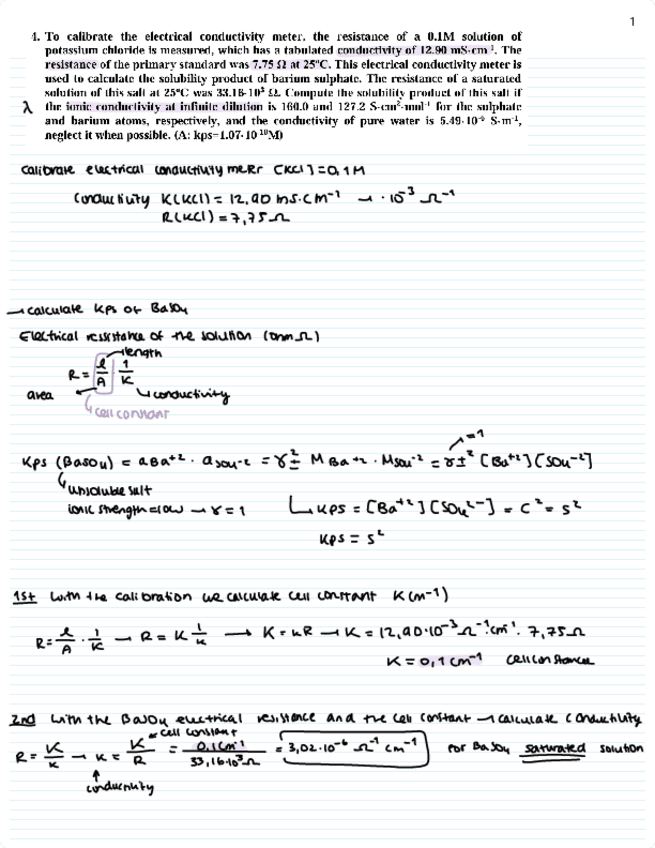 1
4. To calibrate the electrical conductivity meter, the resistance of a 0.1M solution of
potassium chloride is measured, which has a tabulated conductivity of 12.90 mS·cm⁻¹. The
resistance of the primary standard was 7.75 Ω at 25°C. This electrical conductivity meter is
used to calculate the solubility product of barium sulphate. The resistance of a saturated
solution of this salt at 25°C was 33.16·10³ Ω. Compute the solubility product of this salt if
λ the ionic conductivity at infinite dilution is 160.0 and 127.2 S·cm²·mol⁻¹ for the sulphate
and barium atoms, respectively, and the conductivity of pure water is 5.49·10⁻⁶ S·m⁻¹,
neglect it when possible. (A: kps=1.07·10⁻¹⁰M)
Calibrate electrical conductivity meter [KCl]=0,1M
Conductivity K(KCl) = 12,90 mS·cm⁻¹ → ·10⁻³ Ω⁻¹
R(KCl) = 7,75Ω
→ calculate Kps of BaSO₄
Electrical resistance of the solution (Ohm Ω)
→ length
R = l/A · 1/K
area
↳ conductivity
↳ cell constant
→ =1
Kps (BaSO₄) = aBa⁺² · aSO₄⁻² = γ±² M Ba⁺² · MSO₄⁻² = γ±² [Ba⁺²][SO₄⁻²]
↳ unsoluble salt
ionic strength = low → γ = 1
↳ Kps = [Ba⁺²][SO₄²⁻] = C² = S²
Kps = S²
1st With the calibration we calculate cell constant K (m⁻¹)
R = l/A · 1/K → R = K 1/K → K = KR → K = 12,90·10⁻³ Ω⁻¹·cm⁻¹ · 7,75Ω
K = 0,1 cm⁻¹ cell constance
2nd With the BaSO₄ electrical resistence and the cell constant → calculate conductivity
cell constant
R = K/K → K = K/R = 0,1cm⁻¹/33,16·10³Ω = 3,02·10⁻⁶ Ω⁻¹ cm⁻¹ For BaSO₄ saturated solution
↑
conductivity